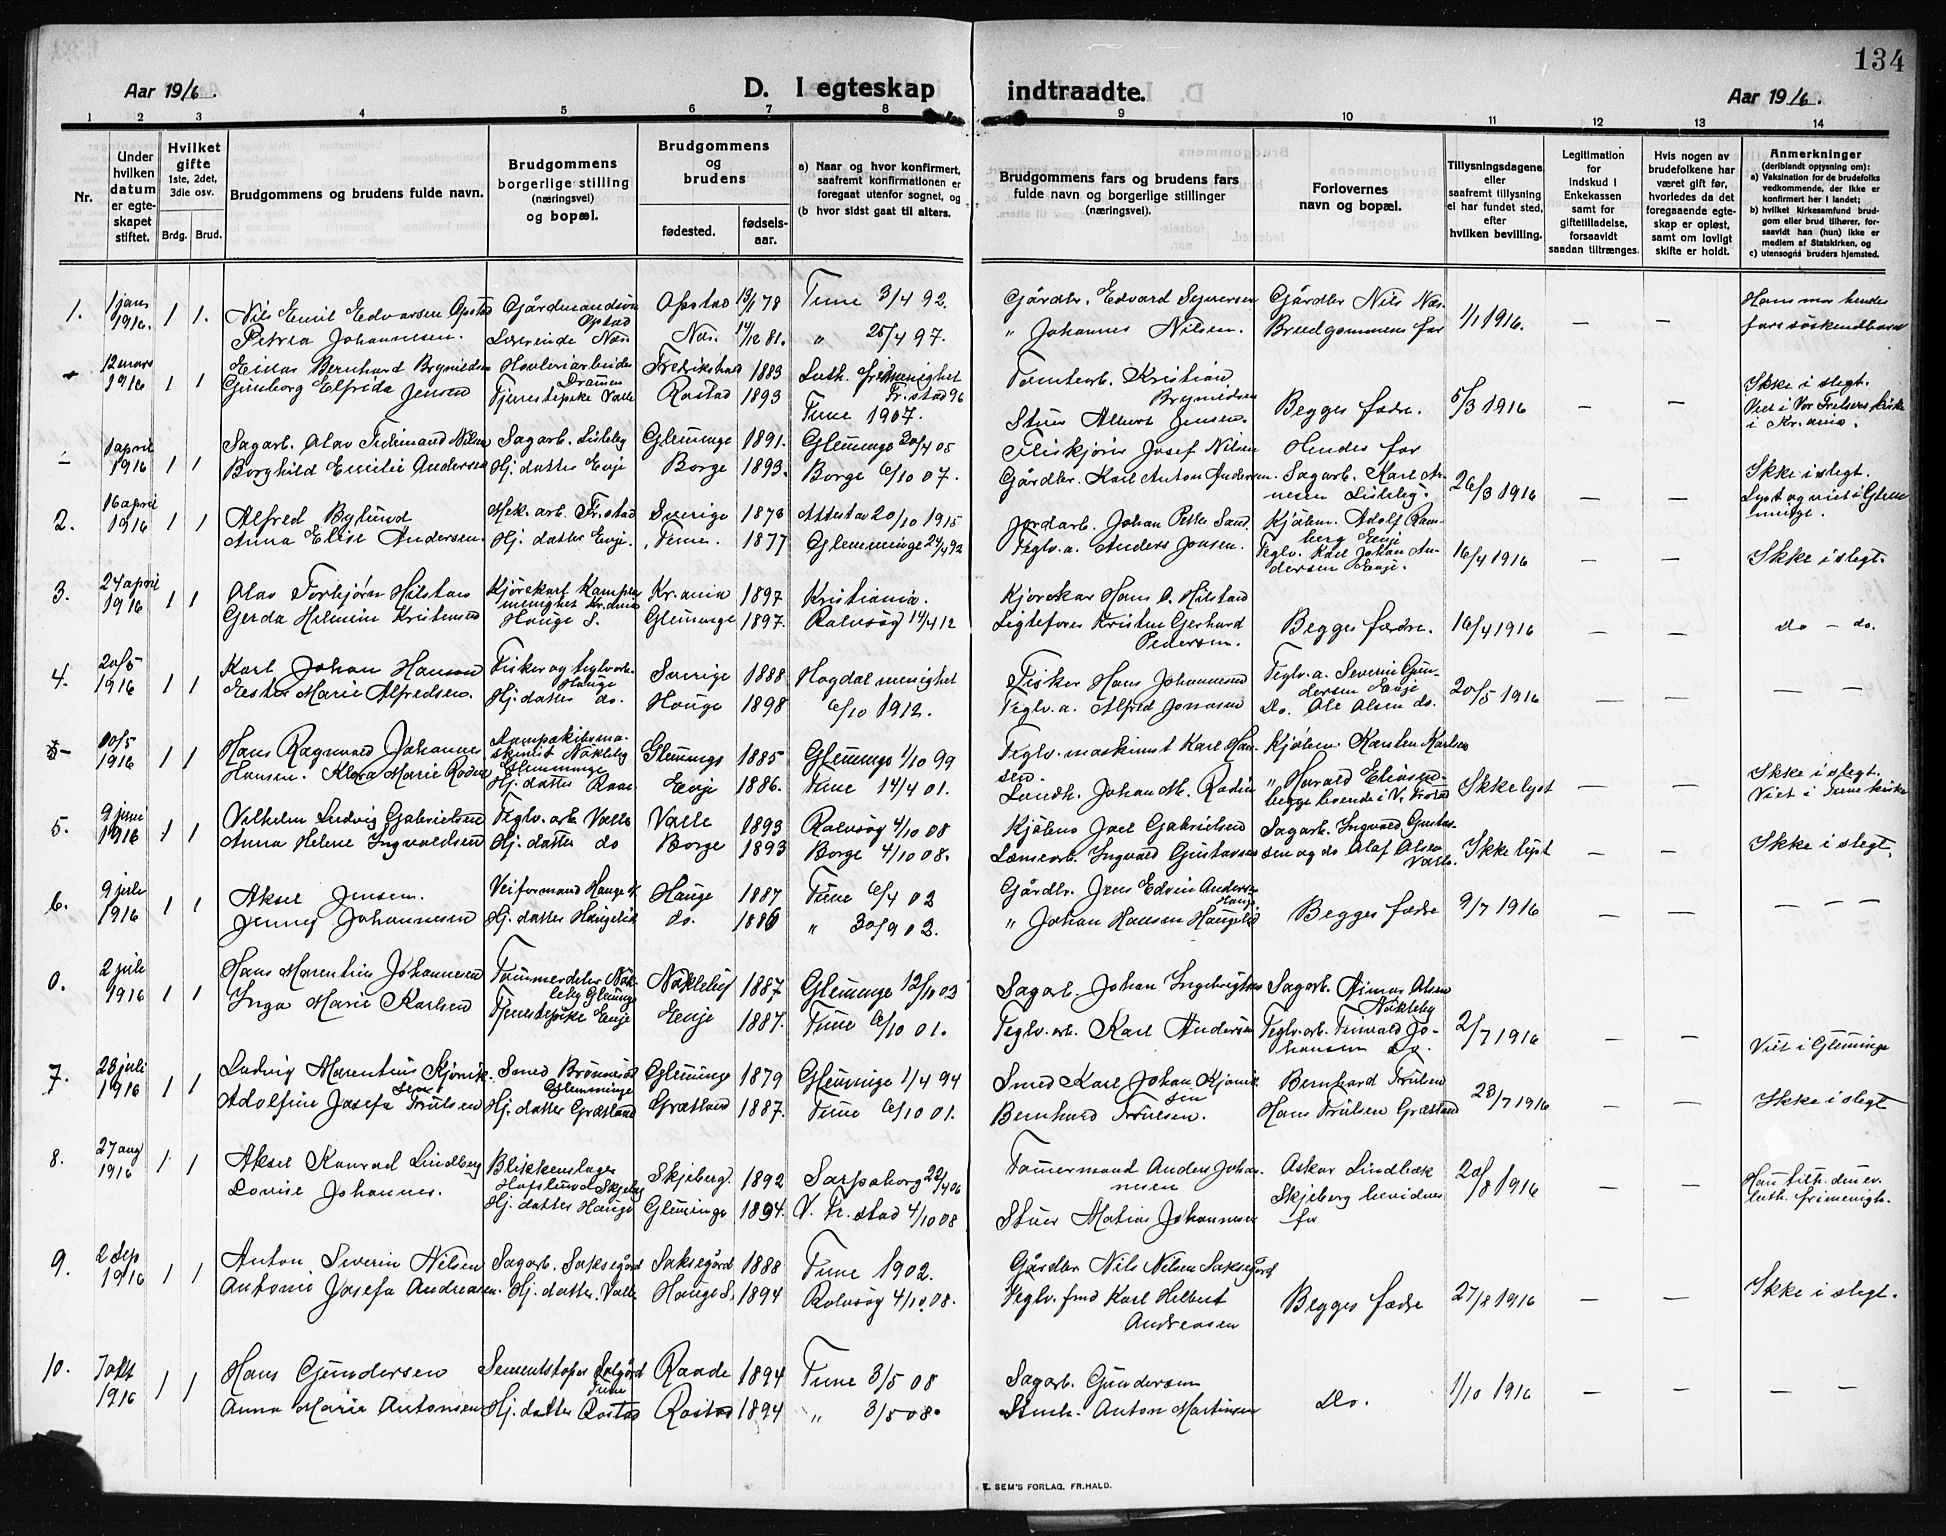 134
Aar 1916.
D. I egteskap indtraadte.
Aar 1916.
1 2 3 4 5 6 7 8 9 10 11 12 13 14
Nr.
Under hvilken datum er egteskapet stiftet.
Hvilket gifte 1ste, 2det, 3die osv.
Brdg. Brud.
Brudgommens og brudens fulde navn.
Brudgommens borgerlige stilling (næringsvei) og bopæl.
Brudgommens og brudens
fødested.
fødsels-aar.
a) Naar og hvor konfirmert, saafremt konfirmationen er foregaat utenfor sognet, og
(b hvor sidst gaat til alters.
Brudgommens fars og brudens fars fulde navn og borgerlige stillinger (næringsvei).
Forlovernes navn og bopæl.
Tillysningsdagene eller saafremt tillysning ei har fundet sted, efter hvilken bevilling.
Legitimation for Indskud i Enkekassen samt for giftetilladelse, forsaavidt saadan tiltrænges.
Hvis nogen av brudefolkene har været gift før, hvorledes da det foregaaende egteskap er opløst, samt om lovligt skifte er holdt.
Anmerkninger (deriblandt opysning om):
a) Vaksination for de brudefolks vedkommende, der ikke er konfirmert her i landet;
b) hvilket kirkesamfund brudgom eller brud tilhører, forsaavidt han (hun) ikke er medlem af Statskirken, og
c) utensogns bruders hjemsted.
1. 1 jan 1916. 1 1. Nils Emil Edvarsen Opstad Gårdmandssøn Opstad Opstad 19/1 78 Tune 3/4 92. Gårdbr. Edvard Syversen Gårdbr Nils Næs. 1/1 1916. — — Hans mor hendes
Petrea Johannesen. Læerinde Næs Næs. 14/12 81. " 25/4 97. " Johannes Nilsen. Brudgommens far fars söskendbarn
12 mars 1916 1 1 Einar Bernhard Brynildsen Høvleriarbeider Dramen Fredrikstad 1883 Luth. frimenighet Fr.stad 96 Tomtearb. Kristian Brynildsen Begges fædre. 5/3 1916 — — Ikke i slegt.
Gunborg Elfrida Jensen Tjenestepike Valle Rostad 1893 Tune 1907. Stuer Albert Jensen. Viet i Vor Frelsers kirke i Kr.ania.
— 1 april 1916 1 1 Sagarb. Olav Ferdinand Nilsen Sagarb. Lisleby Glemminge 1891. Glemminge 20/4 05 Fliskjörer Josef Nilsen Hendes far 26/3 1916 — — Ikke i slegt.
Borghild Emilie Andersen Hj. datter Evje Borge 1893. Borge 6/10 07. Gårdbr. Karl Anton Andersen. Sagarb. Karl Arnesen Lisleby. Lyst og viet i Glemminge.
2. 16 april 1916 1 1 Alfred Bylund Mek. arb. Fr.stad Sverige 1876 Attest av 20/10 1915 Jordarb. Johan Petter Sand. Kjöbm. Adolf Ramberg Evje 16/4 1916 — — Ikke i slegt.
Anna Elise Andersen. Hj. datter Evje. Tune. 1877 Glemminge 24/4 92 Teglv. a. Anders Jonsen. Teglv. Karl Johan Andersen Evje.
3. 24 april 1916 1 1 Olav Torbjørn Hilstad Kjörekarl Kampen menighet Kr.ania Kr.ania 1897 Kristiania. Kjörekar Hans O. Hilstad Begges fædre. 16/4 1916 — — do — do.
Gerda Helmine Kristensen Hauge S. Glemminge 1897. Rolvsøy 14/4 12 Ligtefører Kristen Gerhard Pedersen.
4. 20/5 1916 1 1 Karl Johan Hansen Fisker og teglverk. Hauge Sverige 1888 Hogdal menighet Fisker Hans Johannesen Teglv. a. Severin Gundersen Evje 20/5 1916 — — — —
Ester Marie Alfredsen. Hj. datter do. Hauge 1898 6/10 1912. Teglv. a. Alfred Jonasen Do. Ole Olsen do.
1916 1 1 Hans Ragnvald Johannes Dampskibsmaskinist Nokleby Glemminge Glemminge 1885 Glemminge 1/10 99 Teglv. maskinist Karl Hansen. Kjöbm. Karsten Karlsen Ikke lyst — — Ikke i slegt.
Hansen. Klara Marie Rodin Hj. datter Evje 1886. Tune 14/4 01. Landh. Johan M. Rodin " Harald Eliasen. begge boende i V. Fr.stad Viet i Tune kirke
5. 9 juni 1916 1 1 Vilhelm Ludvig Gabrielsen Teglv. arb. Valle Valle 1893 Rolvsøy 4/10 08 Kjöbm Joel Gabrielsen Sagarb. Ingvald Gustavsen og do Olaf Olsen Valle. Ikke lyst — — Ikke i slegt.
Anna Helene Ingvaldsen Hj. datter do Borge 1893 Borge 4/10 08. Lænsearb. Ingvald Gustavsen
6. 9 juli 1916 1 1 Aksel Jensen. Veiformand Hauge N. Hauge 1887 Tune 6/4 02 Gårdbr. Jens Edvin Andersen Hauge Begges fædre 9/7 1916 — — — — —
Jenny Johannesen Hj. datter Haugelid do. 1886 " 30/9 02. " Johan Hansen Haugelid
0. 2 juli 1916 1 1 Hans Marentius Johannesen Tømmerdeler Nokleby Glemminge Nokleby 1887 Glemminge 12/10 02 Sagarb. Johan Ingebrigtsen Sagarb. Olsen Nokleby 2/7 1916 — — Viet i Glemminge
Inga Marie Karlsen Tjenestepike Evje Evje 1887. Tune 6/10 01. Teglv. arb. Karl Andersen Teglv. arb. Johansen Do.
7. 28 juli 1916 1 1 Ludvig Marentius Kjønigsen Smed Brønnerød Glemminge Glemminge 1879 Glemminge 1/4 94 Smed Karl Johan Kjønigsen Bernhard Trulsen 23/7 1916 — — Ikke i slegt
Adolfine Josefa Trulsen Hj. datter Græsland Græsland 1887. Tune 6/10 01. Bernhard Trulsen. Hans Trulsen Græsland
8. 27 aug 1916 1 1 Aksel Konrad Lindberg Blikkenslager Hafslund Skjeberg Skjeberg. 1892 Sarpsborg 22/4 06 Tømmermand Anders Johannesen Oskar Lindbæk 20/8 1916 — — Han tilh. den ev.
Lovise Johannes. Hj. datter Hauge Glemminge 1894. V. Fr.stad 4/10 08 Stuer Matias Johannesen Skjeberg brudens far luth. frimenigh.
9. 2 Sep 1916 1 1 Anton Severin Nilsen Sagarb. Saksegård Saksegård 1888 Tune 1902. Gårdbr Nils Nilsen Saksegård Begges fædre 27/8 1916 — — Ikke i slegt.
Antonie Josefa Andreasen. Hj. datter. Valle Hauge S. 1894 Rolvsøy 4/10 08. Teglv. fmd Karl Helbert Andreasen
10. 7 okt 1916 1 1 Hans Gundersen Sementstøper Solgård Tune Raade 1894 Tune 3/5 08 Sagarb. Gundersen Do. 1/10 1916 — — — —
Anna Marie Antonsen Hj. datter Rostad Rostad 1894 " 3/5 08. Anton Martinsen
E. SEM'S FORLAG. FR.HALD.